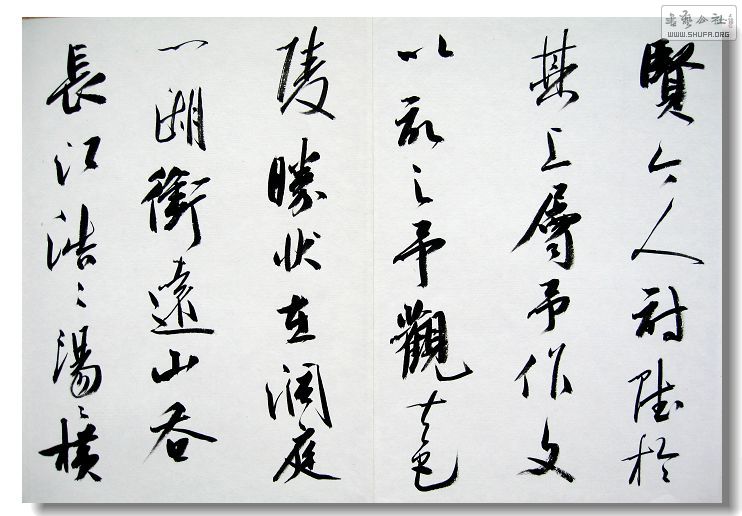 賢今人詩賦於
其上屬予作文
以記之予觀夫巴
陵勝狀在洞庭
一湖銜遠山吞
長江浩〻湯〻橫
書藝公社
WWW.SHUFA.ORG